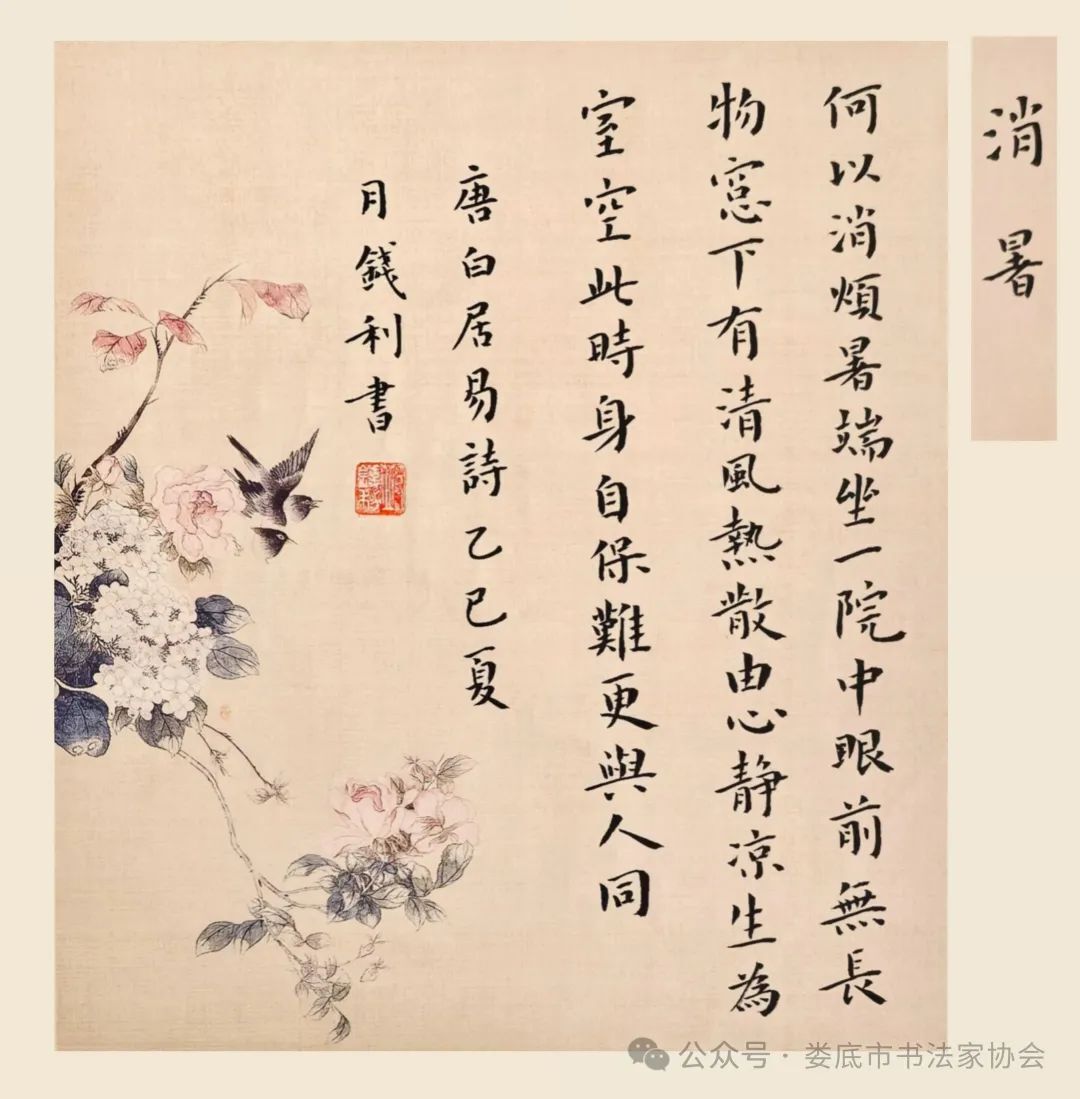 消暑
何以消煩暑端坐一院中眼前無長
物窓下有清風熱散由心静凉生為
室空此時身自保難更與人同
唐白居易詩乙巳夏
月錢利書
公众号 · 娄底市书法家协会